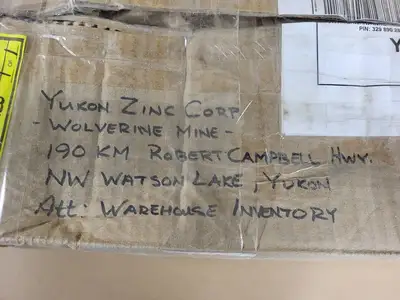 PIN: 329 890
YUKON ZINC CORP
- WOLVERINE MINE -
190 KM ROBERT CAMPBELL HWY.
NW WATSON LAKE, YUKON
Att: WAREHOUSE INVENTORY